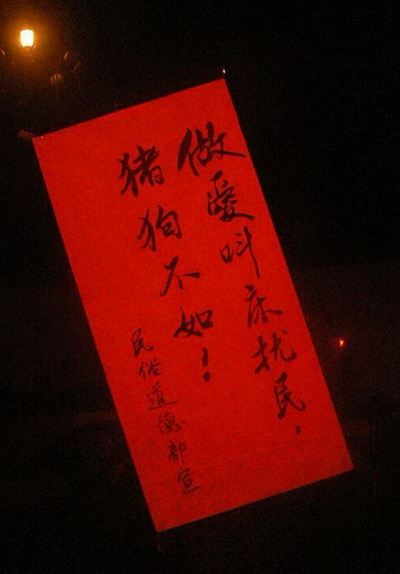 做爱叫床扰民、
猪狗不如！
民俗道德部宣